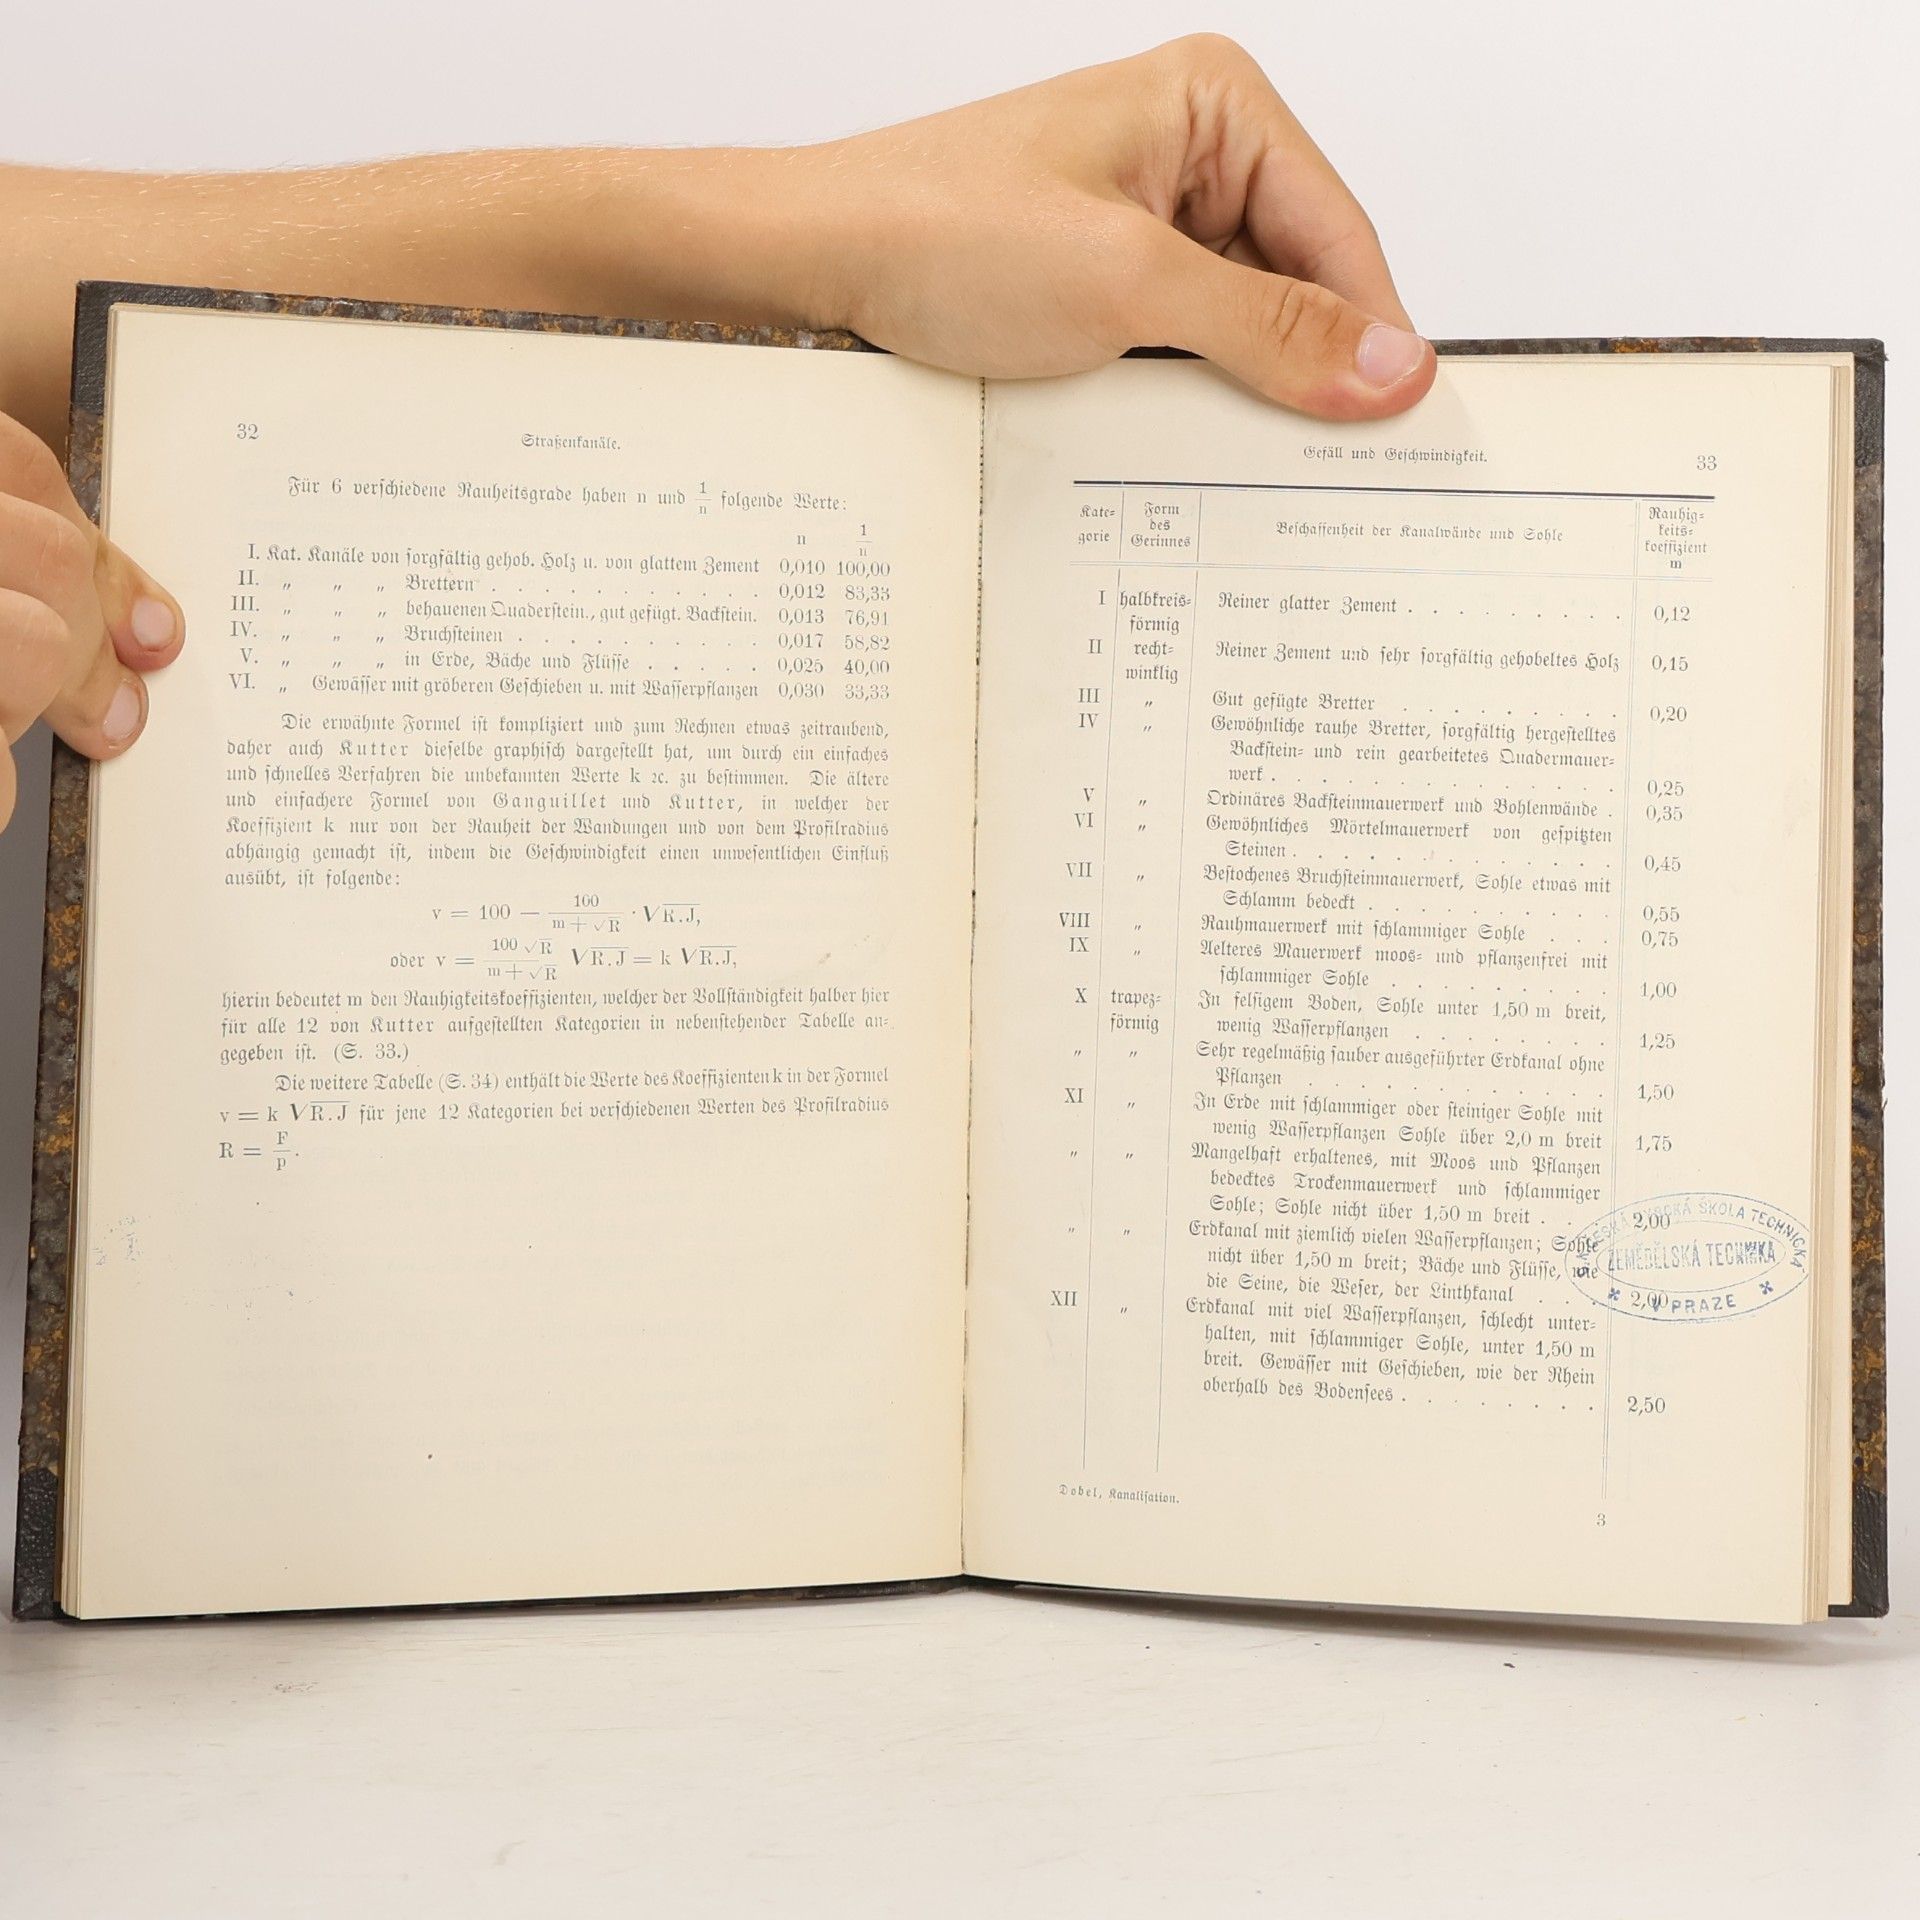 32
Straßenkanäle.
Für 6 verschiedene Rauheitsgrade haben n und 1/n folgende Werte:
n 1/n
I. Kat. Kanäle von sorgfältig gehob. Holz u. von glattem Zement 0,010 100,00
II. „ „ „ Brettern . . . . . . . . . . . 0,012 83,33
III. „ „ „ behauenen Quaderstein., gut gefügt. Backstein. 0,013 76,91
IV. „ „ „ Bruchsteinen . . . . . . . . . . 0,017 58,82
V. „ „ „ in Erde, Bäche und Flüsse . . . . . 0,025 40,00
VI. „ Gewässer mit gröberen Geschieben u. mit Wasserpflanzen 0,030 33,33
Die erwähnte Formel ist kompliziert und zum Rechnen etwas zeitraubend,
daher auch Kutter dieselbe graphisch dargestellt hat, um durch ein einfaches
und schnelles Verfahren die unbekannten Werte k ꝛc. zu bestimmen. Die ältere
und einfachere Formel von Ganguillet und Kutter, in welcher der
Koeffizient k nur von der Rauheit der Wandungen und von dem Profilradius
abhängig gemacht ist, indem die Geschwindigkeit einen unwesentlichen Einfluß
ausübt, ist folgende:
v = 100 − 100/(m + √R) · √R.J,
oder v = 100 √R/(m + √R) √R.J = k √R.J,
hierin bedeutet m den Rauhigkeitskoeffizienten, welcher der Vollständigkeit halber hier
für alle 12 von Kutter aufgestellten Kategorien in nebenstehender Tabelle an-
gegeben ist. (S. 33.)
Die weitere Tabelle (S. 34) enthält die Werte des Koeffizienten k in der Formel
v = k √R.J für jene 12 Kategorien bei verschiedenen Werten des Profilradius
R = F/p.
Gefäll und Geschwindigkeit.
33
Kate-
gorie
Form
des
Gerinnes
Beschaffenheit der Kanalwände und Sohle
Rauhig-
keits-
koeffizient
m
I halbkreis- Reiner glatter Zement . . . . . . . . . 0,12
förmig
II recht- Reiner Zement und sehr sorgfältig gehobeltes Holz 0,15
winklig
III „ Gut gefügte Bretter . . . . . . . . . 0,20
IV „ Gewöhnliche rauhe Bretter, sorgfältig hergestelltes
Backstein- und rein gearbeitetes Quadermauer-
werk . . . . . . . . . . . . . 0,25
V „ Ordinäres Backsteinmauerwerk und Bohlenwände . 0,35
VI „ Gewöhnliches Mörtelmauerwerk von gespitzten
Steinen . . . . . . . . . . . . 0,45
VII „ Bestochenes Bruchsteinmauerwerk, Sohle etwas mit
Schlamm bedeckt . . . . . . . . . . 0,55
VIII „ Rauhmauerwerk mit schlammiger Sohle . . . 0,75
IX „ Aelteres Mauerwerk moos- und pflanzenfrei mit
schlammiger Sohle . . . . . . . . . 1,00
X trapez- In felsigem Boden, Sohle unter 1,50 m breit,
förmig wenig Wasserpflanzen . . . . . . . . 1,25
„ „ Sehr regelmäßig sauber ausgeführter Erdkanal ohne
Pflanzen . . . . . . . . . . . . 1,50
XI „ In Erde mit schlammiger oder steiniger Sohle mit
wenig Wasserpflanzen Sohle über 2,0 m breit 1,75
„ „ Mangelhaft erhaltenes, mit Moos und Pflanzen
bedecktes Trockenmauerwerk und schlammiger
Sohle; Sohle nicht über 1,50 m breit . . . 2,00
„ „ Erdkanal mit ziemlich vielen Wasserpflanzen; Sohle
nicht über 1,50 m breit; Bäche und Flüsse, wie
die Seine, die Weser, der Linthkanal . . . 2,00
XII „ Erdkanal mit viel Wasserpflanzen, schlecht unter-
halten, mit schlammiger Sohle, unter 1,50 m
breit. Gewässer mit Geschieben, wie der Rhein
oberhalb des Bodensees . . . . . . . . 2,50
ČESKÁ VYSOKÁ ŠKOLA TECHNICKÁ
ZEMĚDĚLSKÁ TECHNIKA
V PRAZE
Dobel, Kanalisation.
3